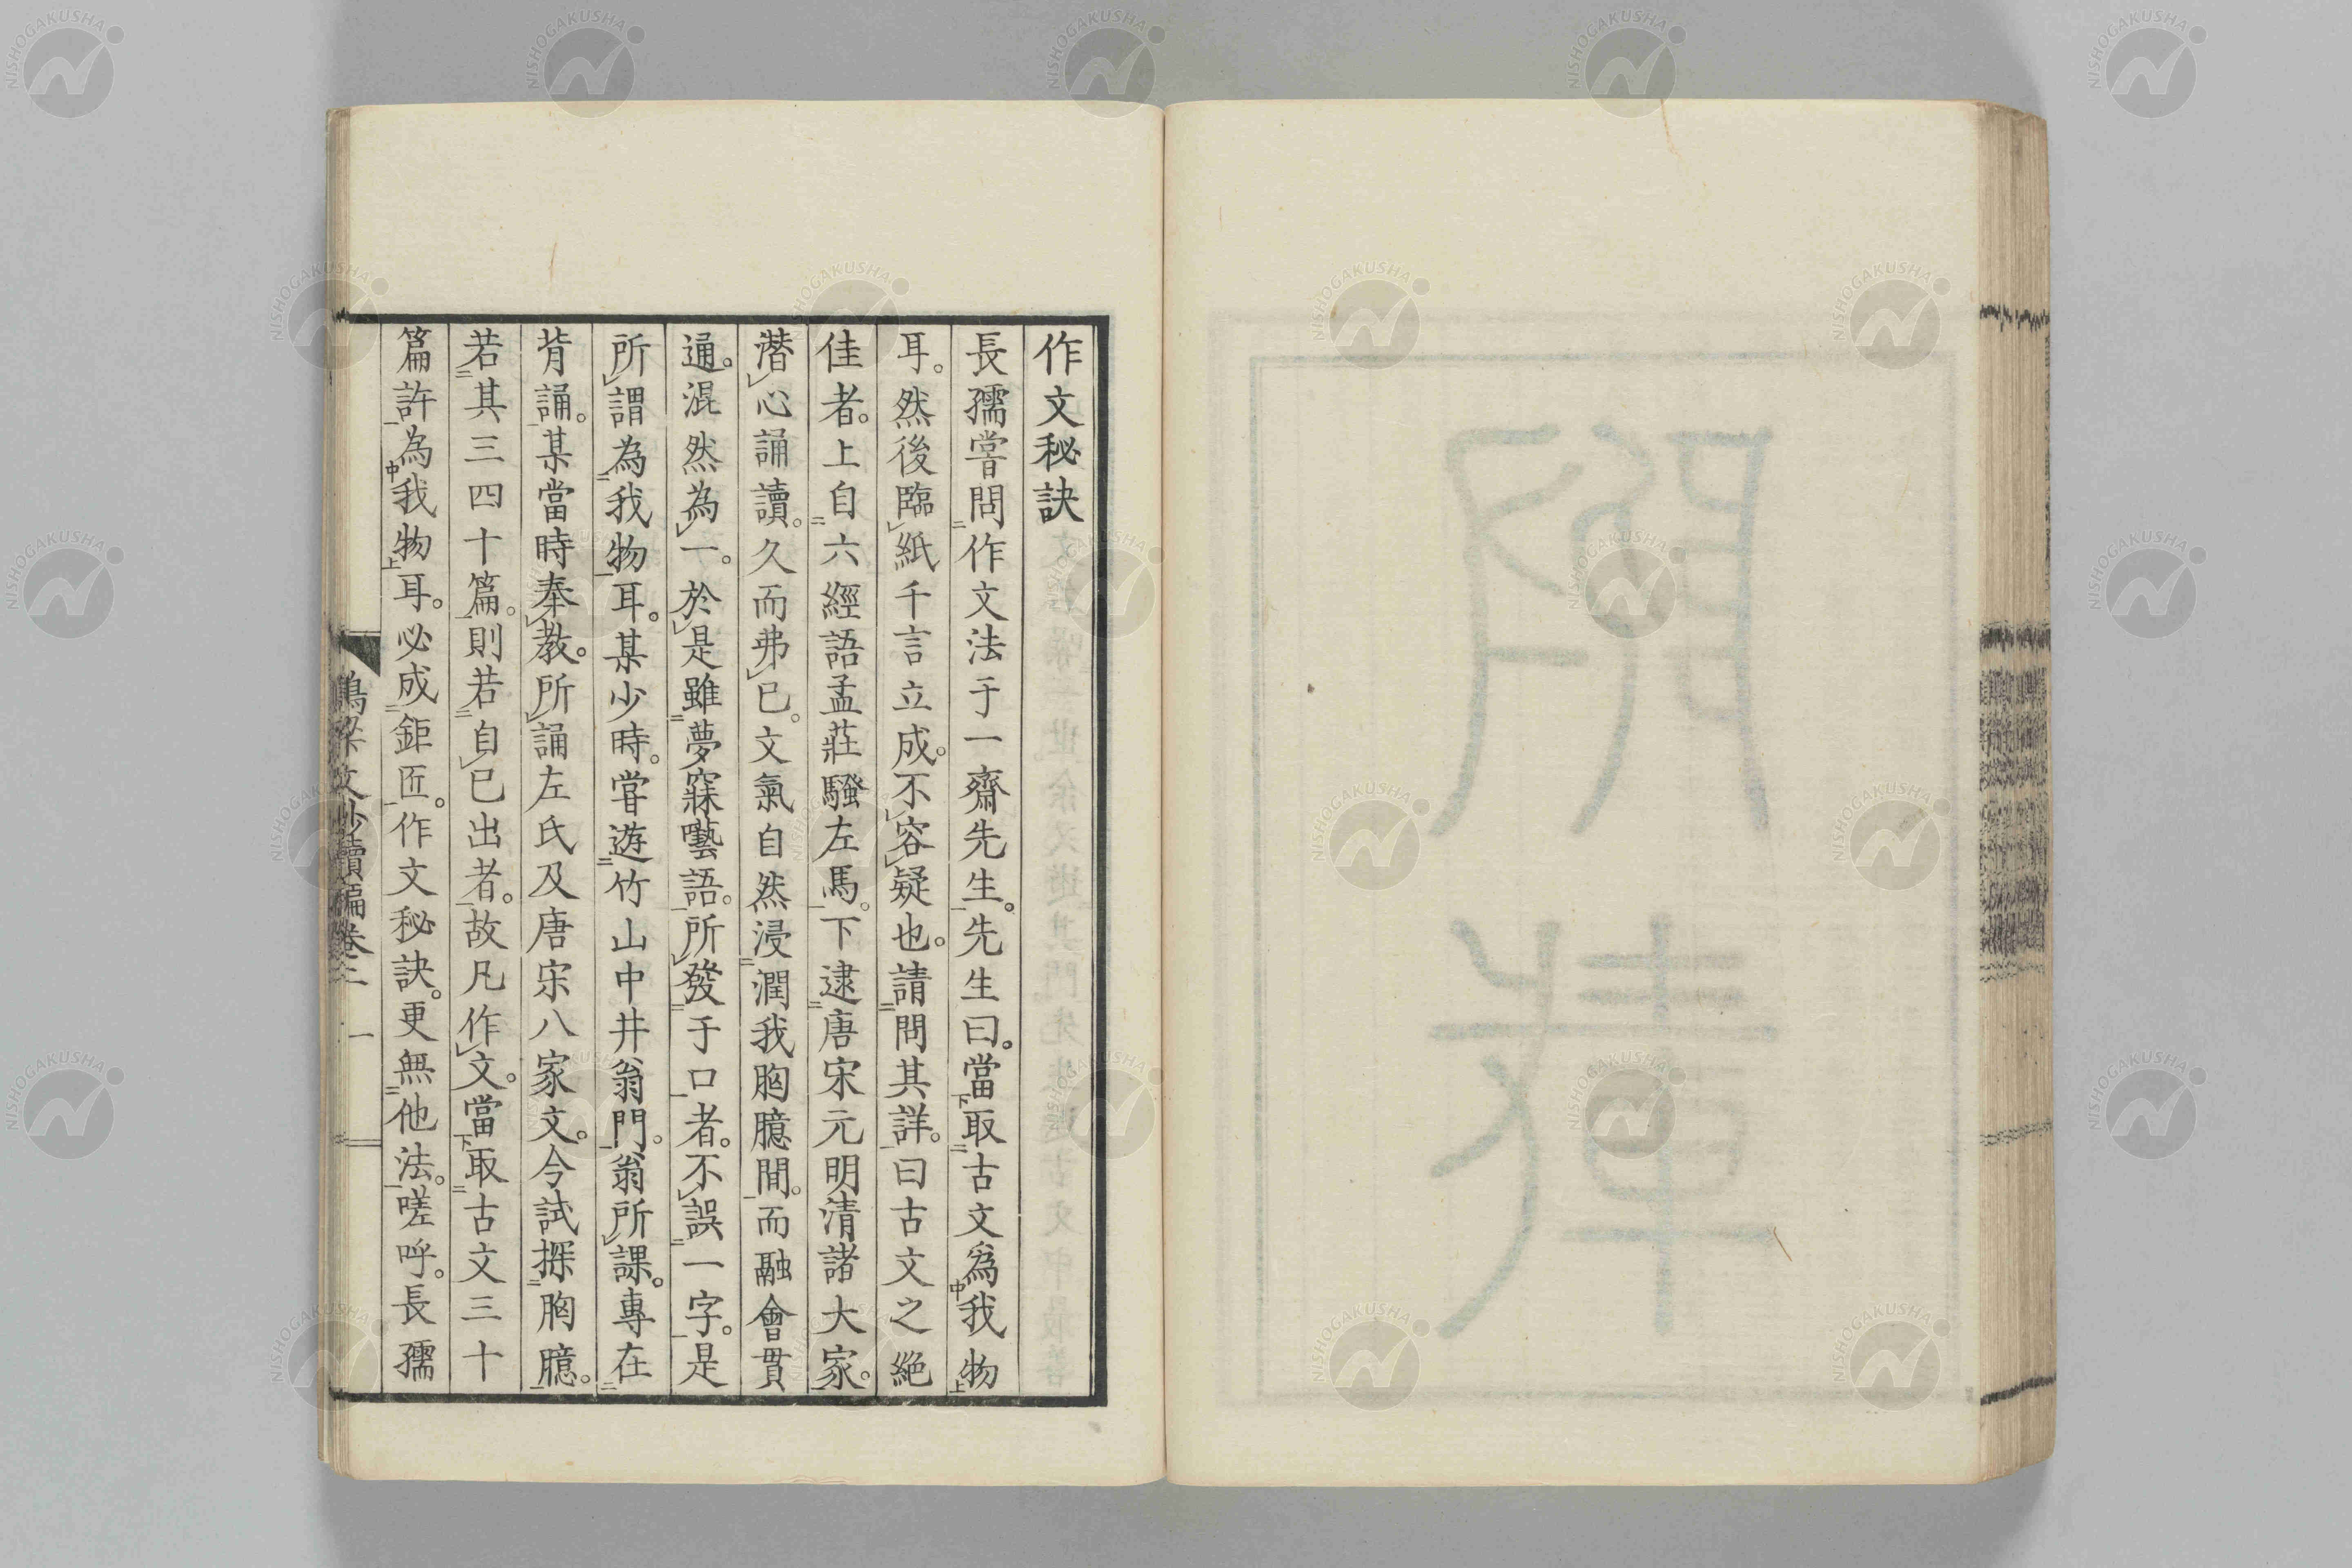 作文秘訣
長孺嘗問作文法于一齋先生。先生曰。當取古文爲我物
耳。然後臨紙千言立成。不容疑也。請問其詳。曰古文之絶
佳者。上自六經語孟莊騷左馬。下逮唐宋元明清諸大家。
潛心誦讀。久而弗已。文氣自然浸潤我胸臆間。而融會貫
通。混然為一。於是雖夢寐囈語。所發于口者。不誤一字。是
所謂為我物耳。某少時。嘗遊竹山中井翁門。翁所課。專在
背誦。某當時奉教。所誦左氏及唐宋八家文。今試探胸臆。
若其三四十篇。則若自已出者。故凡作文。當取古文三十
篇許為我物耳。必成鉅匠。作文秘訣。更無他法。嗟呼。長孺
文鈔續編卷二 一
NISHOGAKUSHA